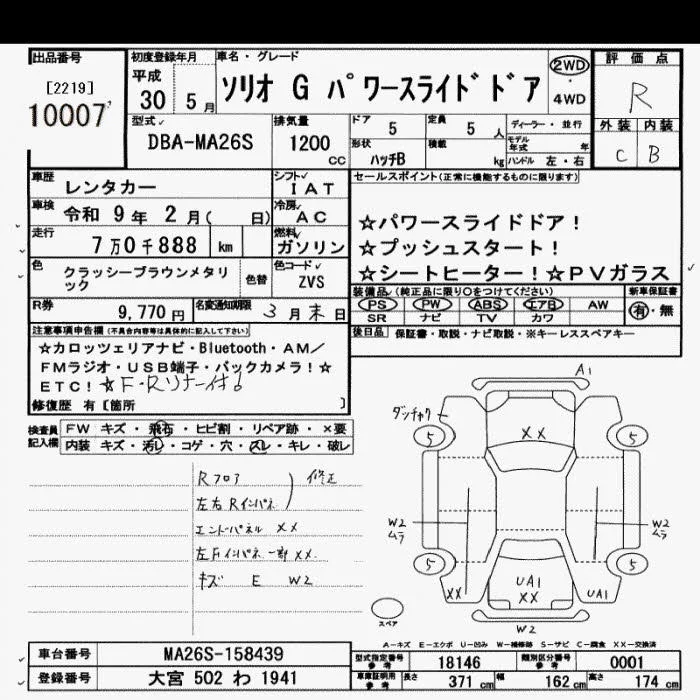 出品番号
[2219]
10007
初度登録年月
平成
30 5月
車名・グレード
ソリオ G パワースライドドア
2WD
・
4WD
評価点
R
外装 内装
C B
型式
DBA-MA26S
排気量
1200
CC
ドア 5
定員 5 人
形状 ハッチB
積載 kg
ディーラー・並行
モデル年式 年
ハンドル 左・右
車歴 レンタカー
シフト IAT
車検 令和 9年 2月( 日)
冷房 AC
走行 7万0千888 km
燃料 ガソリン
色 クラッシーブラウンメタリック
色替
色コード ZVS
R券 9,770円
名変通知期限 3月末日
セールスポイント(正常に機能するものに限ります)
☆パワースライドドア!
☆プッシュスタート!
☆シートヒーター!☆PVガラス
装備品(純正品に限り○をつけてください)
PS PW ABS エアB AW
SR ナビ TV カワ
新車保証書
有・無
後日品 保証書・取説・ナビ取説・※キーレススペアキー
注意事項申告欄(不具合内容等は具体的に記入して下さい)
☆カロッツェリアナビ・Bluetooth・AM/
FMラジオ・USB端子・バックカメラ!☆
ETC!☆F・Rソナー付
修復歴 有〔箇所 〕
検査員記入欄
FW キズ・飛石・ヒビ割・リペア跡・×要
内装 キズ・汚レ・コゲ・穴・スレ・キレ・破レ
Rフロア
左右Rインパネ
修正
エンドパネル XX
左Fインパネ一部XX.
キズ E W2
A1
XX
5
5
W2
ムラ
W2
ムラ
5
5
XX
UA1
XX
UA1
W2
スペア
A-キズ E-エクボ U-凹み W-補修跡 S-サビ C-腐食 XX-交換済
車台番号 MA26S-158439
登録番号 大宮 502 わ 1941
型式指定番号参考 18146
類別区分番号参考 0001
車庫証明用参考 長さ 371cm 幅 162cm 高さ 174cm